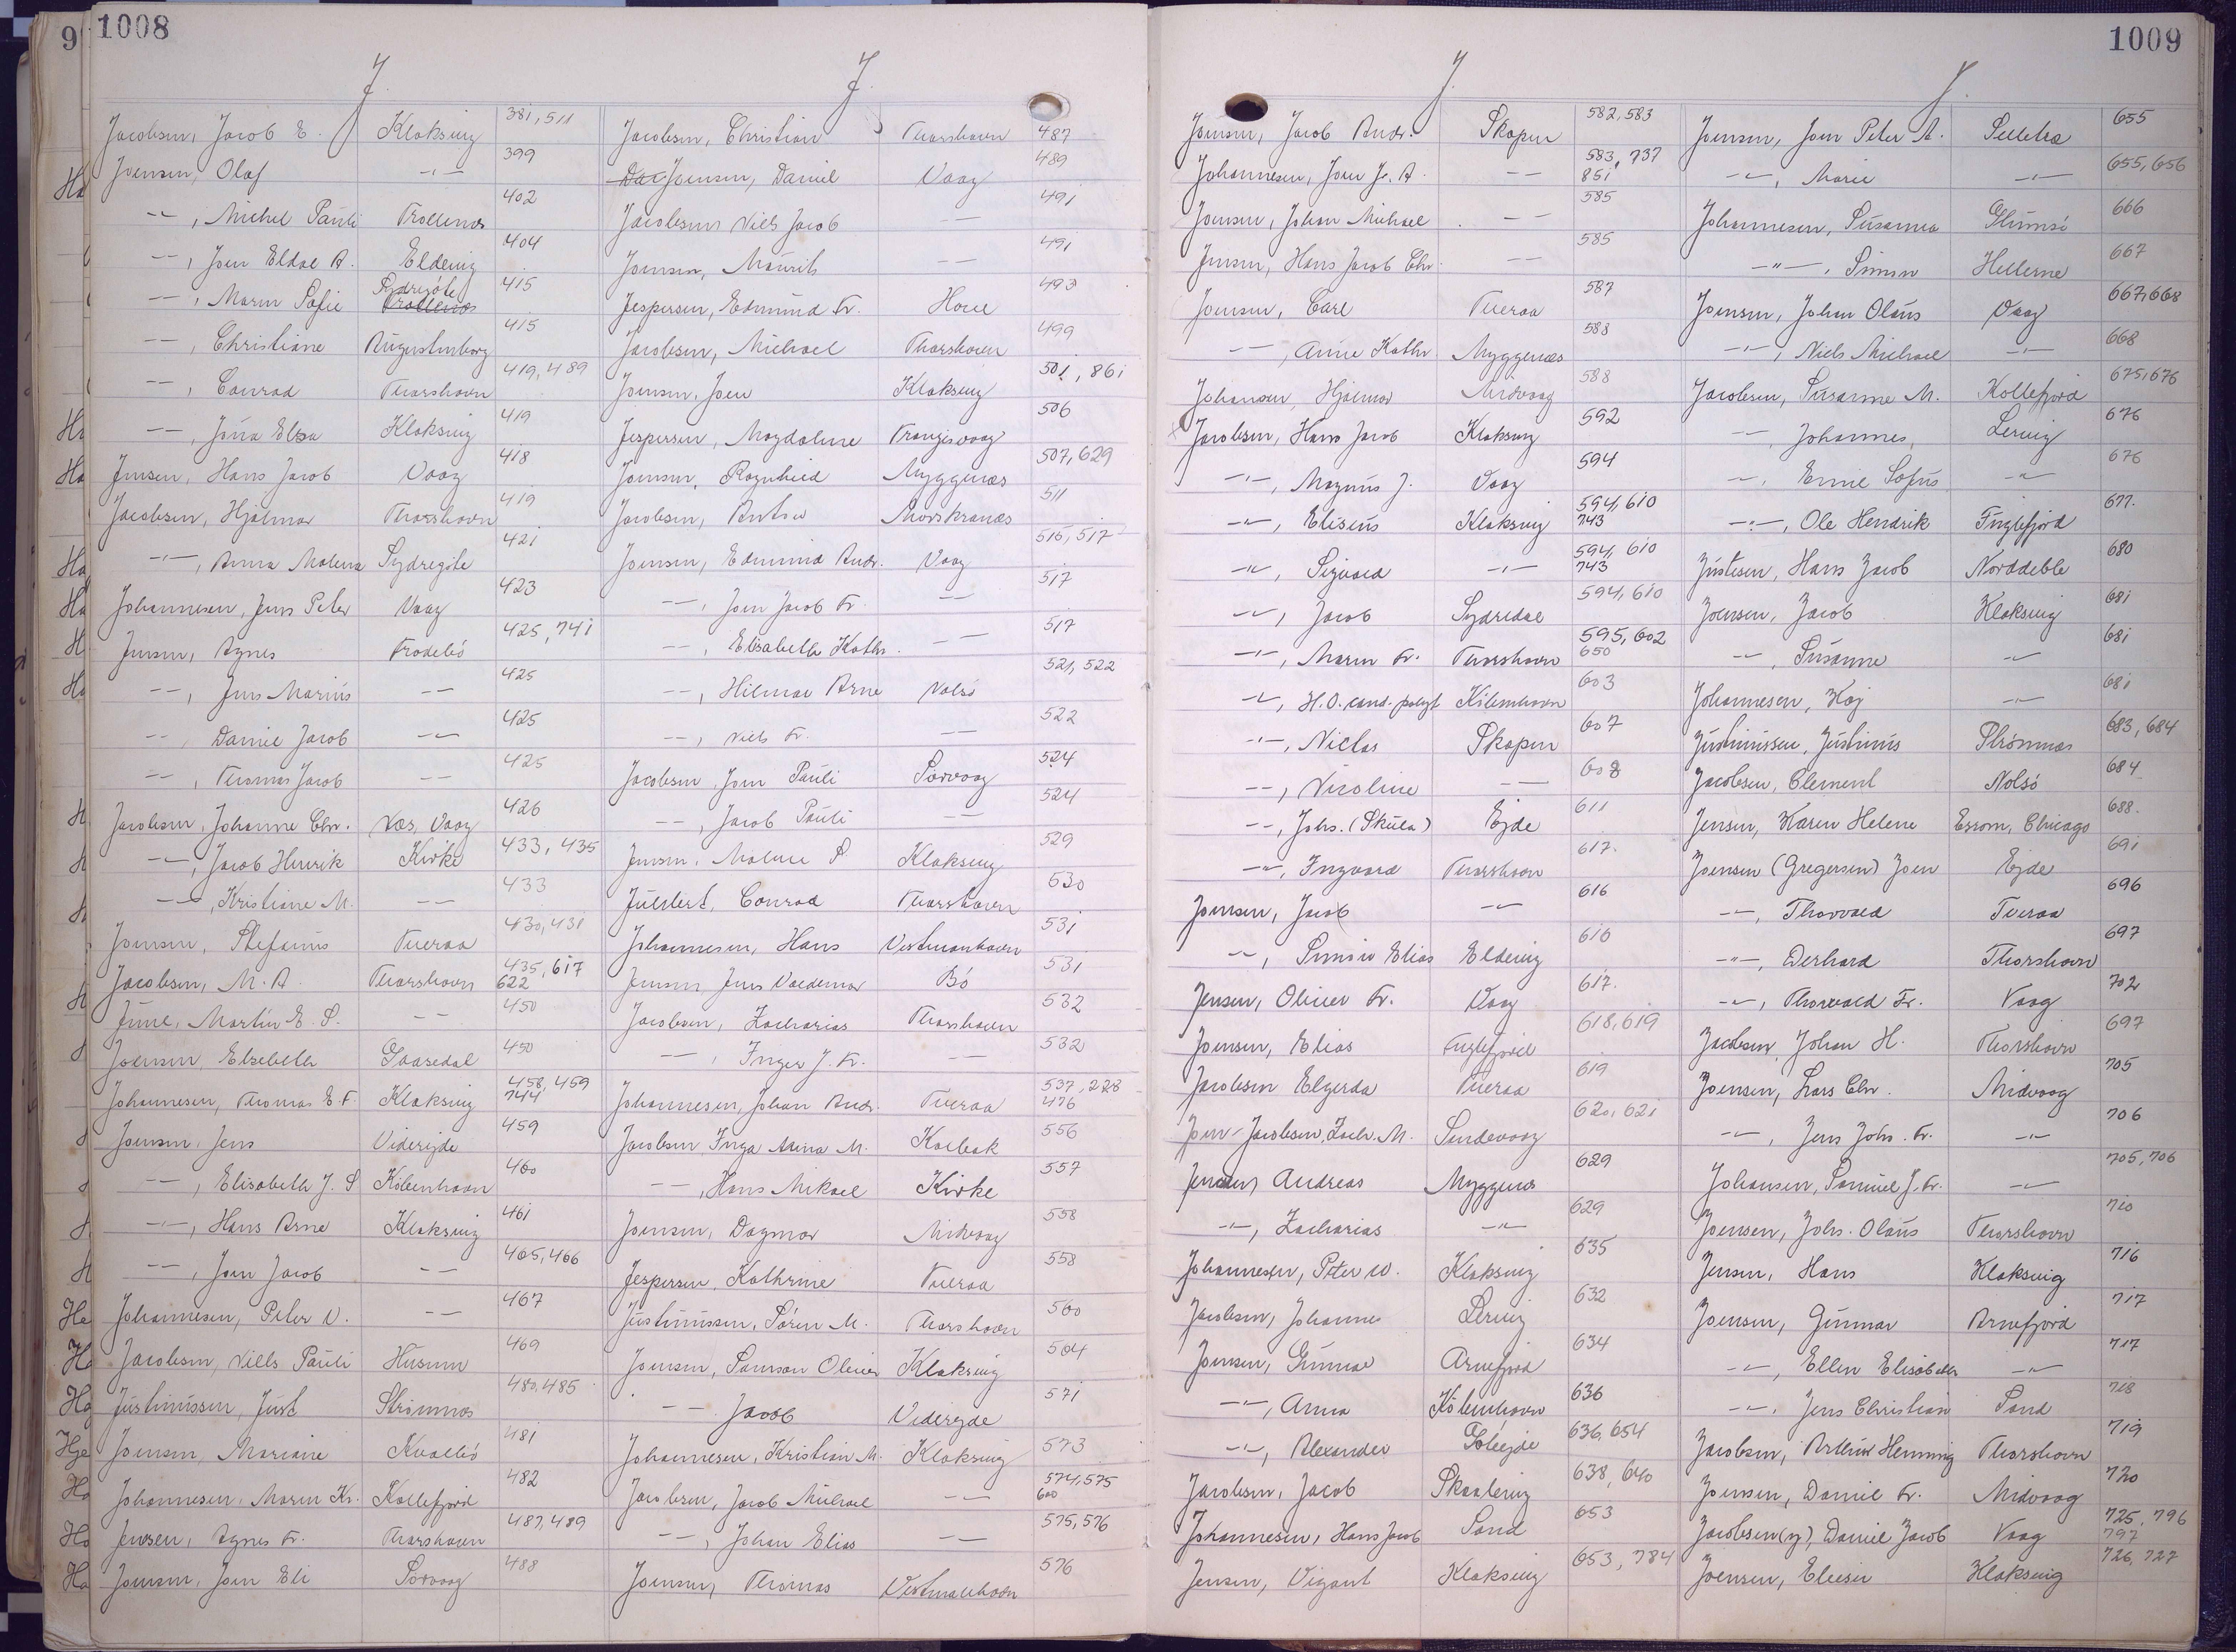 9
1008
J.
Jacobsen, Jacob E. Klaksvig 381, 511
Joensen, Olaf -"- 399
-"-, Michel Pauli Trollenæs 402
-"-, Joen Eldal A. Eldevig 404
-"-, Maren Sofie Sydregöte Trollenæs 415
-"-, Christiane Augustenborg 415
-"-, Conrad Thorshavn 419, 489
-"-, Jóna Elsa Klaksvig 419
Jensen, Hans Jacob Vaag 418
Jacobsen, Hjalmar Thorshavn 419
-"-, Anna Malena Sydregöte 421
Johannesen, Jens Peter Vaag 423
Jensen, Agnes Frodebö 425, 741
-"-, Jens Marius -"- 425
-"-, Daniel Jacob -"- 425
-"-, Thomas Jacob -"- 425
Jacobsen, Johanne Chr. Næs, Vaag 426
-"-, Jacob Henrik Kirke 433, 435
-"-, Kristiane M. -"- 433
Joensen, Stefanus Tveraa 430, 431
Jacobsen, M. A. Thorshavn 435, 617 622
June, Martin E. S. -"- 450
Joensen, Elsebeth Gaasedal 450
Johannesen, Thomas E. F. Klaksvig 458, 459 744
Joensen, Jens Viderejde 459
-"-, Elisabeth J. S. Köbenhavn 460
-"-, Hans Arne Klaksvig 461
-"-, Joen Jacob -"- 465, 466
Johannesen, Peter V. -"- 467
Jacobsen, Niels Pauli Husum 469
Justinussen, Just Strömnæs 480, 485
Joensen, Mariane Kvalbö 481
Johannesen, Maren Kr. Kollefjord 482
Jensen, Agnes Fr. Thorshavn 487, 489
Joensen, Joen Eli Sorvaag 488
J.
Jacobsen, Christian Thorshavn 487
Joensen, Daniel Vaag 489
Jacobsen Niels Jacob -"- 491
Joensen, Maurits -"- 491
Jespersen, Edmund Fr. Hove 493
Jacobsen, Michael Thorshavn 499
Joensen, Joen Klaksvig 501, 861
Jespersen, Magdalene Trangisvaag 506
Joensen, Ragnhild Myggenæs 507, 629
Jacobsen, Anton Morskranæs 511
Joensen, Edmund Andr. Vaag 515, 517
-"-, Joen Jacob Fr. -"- 517
-"-, Elisabeth Kathr. -"- 517
-"-, Hilmar Arne Nolsö 521, 522
-"-, Niels Fr. -"- 522
Jacobsen, Joen Pauli Sorvaag 524
-"-, Jacob Pauli -"- 524
Jensen, Malene S Klaksvig 529
Juulert, Conrad Thorshavn 530
Johannesen, Hans Vestmanhavn 531
Jensen Jens Valdemar Bö 531
Jacobsen, Zacharias Thorshavn 532
-"-, Inger J. Fr. -"- 532
Johannesen, Johan Andr. Tveraa 537, 228 476
Jacobsen Inga Anna M. Kolbak 556
-"-, Hans Mikael Kirke 557
Joensen, Dagmar Midvaag 558
Jespersen, Kathrine Tveraa 558
Justinussen, Sören M. Thorshavn 560
Joensen, Samson Oliver Klaksvig 564
-"- Jacob Viderejde 571
Johannesen, Kristian M. Klaksvig 573
Jacobsen, Jacob Michael -"- 574, 575 600
-"-, Johan Elias -"- 575, 576
Joensen, Thomas Vestmanhavn 576
1009
J.
Joensen, Jacob Andr. Skopun 582, 583
Johannesen, Joen Js. A. -"- 583, 737 851
Joensen, Johan Michael -"- 585
Jensen, Hans Jacob Chr. -"- 585
Joensen, Carl Tveraa 587
-"-, Anne Kathr Myggenæs 588
Johansen, Hjalmar Midvaag 588
Jacobsen, Hans Jacob Klaksvig 592
-"-, Magnus J. Vaag 594
-"-, Eliseus Klaksvig 594, 610 743
-"-, Sigvald -"- 594, 610 743
-"-, Jacob Sydredal 594, 610
-"-, Maren Fr. Thorshavn 595, 602 650
-"-, H. O. cand. polyt Köbenhavn 603
-"-, Niclas Skopun 607
-"-, Nicoline -"- 608
-"-, Johs. (Skula) Ejde 611
-"-, Ingvard Thorshavn 617.
Joensen, Jacob -"- 616
-"-, Simun Elias Eldevig 616
Jensen, Oliver Fr. Vaag 617.
Joensen, Elias Fuglefjord 618, 619
Jacobsen Elgerda Tveraa 619
Joen-Jacobsen, Zach. M. Sandevaag 620, 621
Jensen, Andreas Myggenæs 629
-"-, Zacharias -"- 629
Johannesen, Peter W. Klaksvig 635
Jacobsen, Johanne Lervig 632
Joensen, Gunnar Arnefjord 634
-"-, Anna Köbenhavn 636
-"-, Alexander Göteejde 636, 654
Jacobsen, Jacob Skaalevig 638, 640
Johannesen, Hans Jacob Sand 653
Jensen, Vigant Klaksvig 653, 784
J.
Joensen, Joen Peter A. Selletræ 655
-"-, Marie -"- 655, 656
Johannesen, Susanna Glumsö 666
-"-, Simon Hellerne 667
Joensen, Johan Olaus Vaag 667, 668
-"-, Niels Michael -"- 668
Jacobsen, Susanne M. Kollefjord 675, 676
-"-, Johannes, Lervig 676
-"-, Emil Sofus -"- 676
-"-, Ole Hendrik Fuglefjord 677.
Justesen, Hans Jacob Norddeble 680
Joensen, Jacob Klaksvig 681
-"-, Susanne -"- 681
Johannesen, Kaj -"- 681
Justinussen, Justinus Strömnæs 683, 684
Jacobsen, Clement Nolsö 684
Jensen, Karen Helene Esrom, Chicago 688.
Joensen (Gregersen) Joen Ejde 691
-"-, Thorvald Tveraa 696
-"-, Derhard Thorshavn 697
-"-, Thorvald Fr. Vaag 702
Jacobsen, Johan H. Thorshavn 697
Joensen, Lars Chr. Midvaag 705
-"-, Jens Johs. Fr. -"- 706
Johansen, Samuel J. Fr. -"- 705, 706
Joensen, Johs. Olaus Thorshavn 710
Jensen, Hans Klaksvig 716
Joensen, Gunnar Arnefjord 717
-"-, Ellen Elisabeth -"- 717
-"-, Jens Christian Sand 718
Jacobsen, Arthur Henning Thorshavn 719
Joensen, Daniel Fr. Midvaag 720
Jacobsen(y), Daniel Jacob Vaag 725, 796 797
Joensen, Eliesér Klaksvig 726, 727